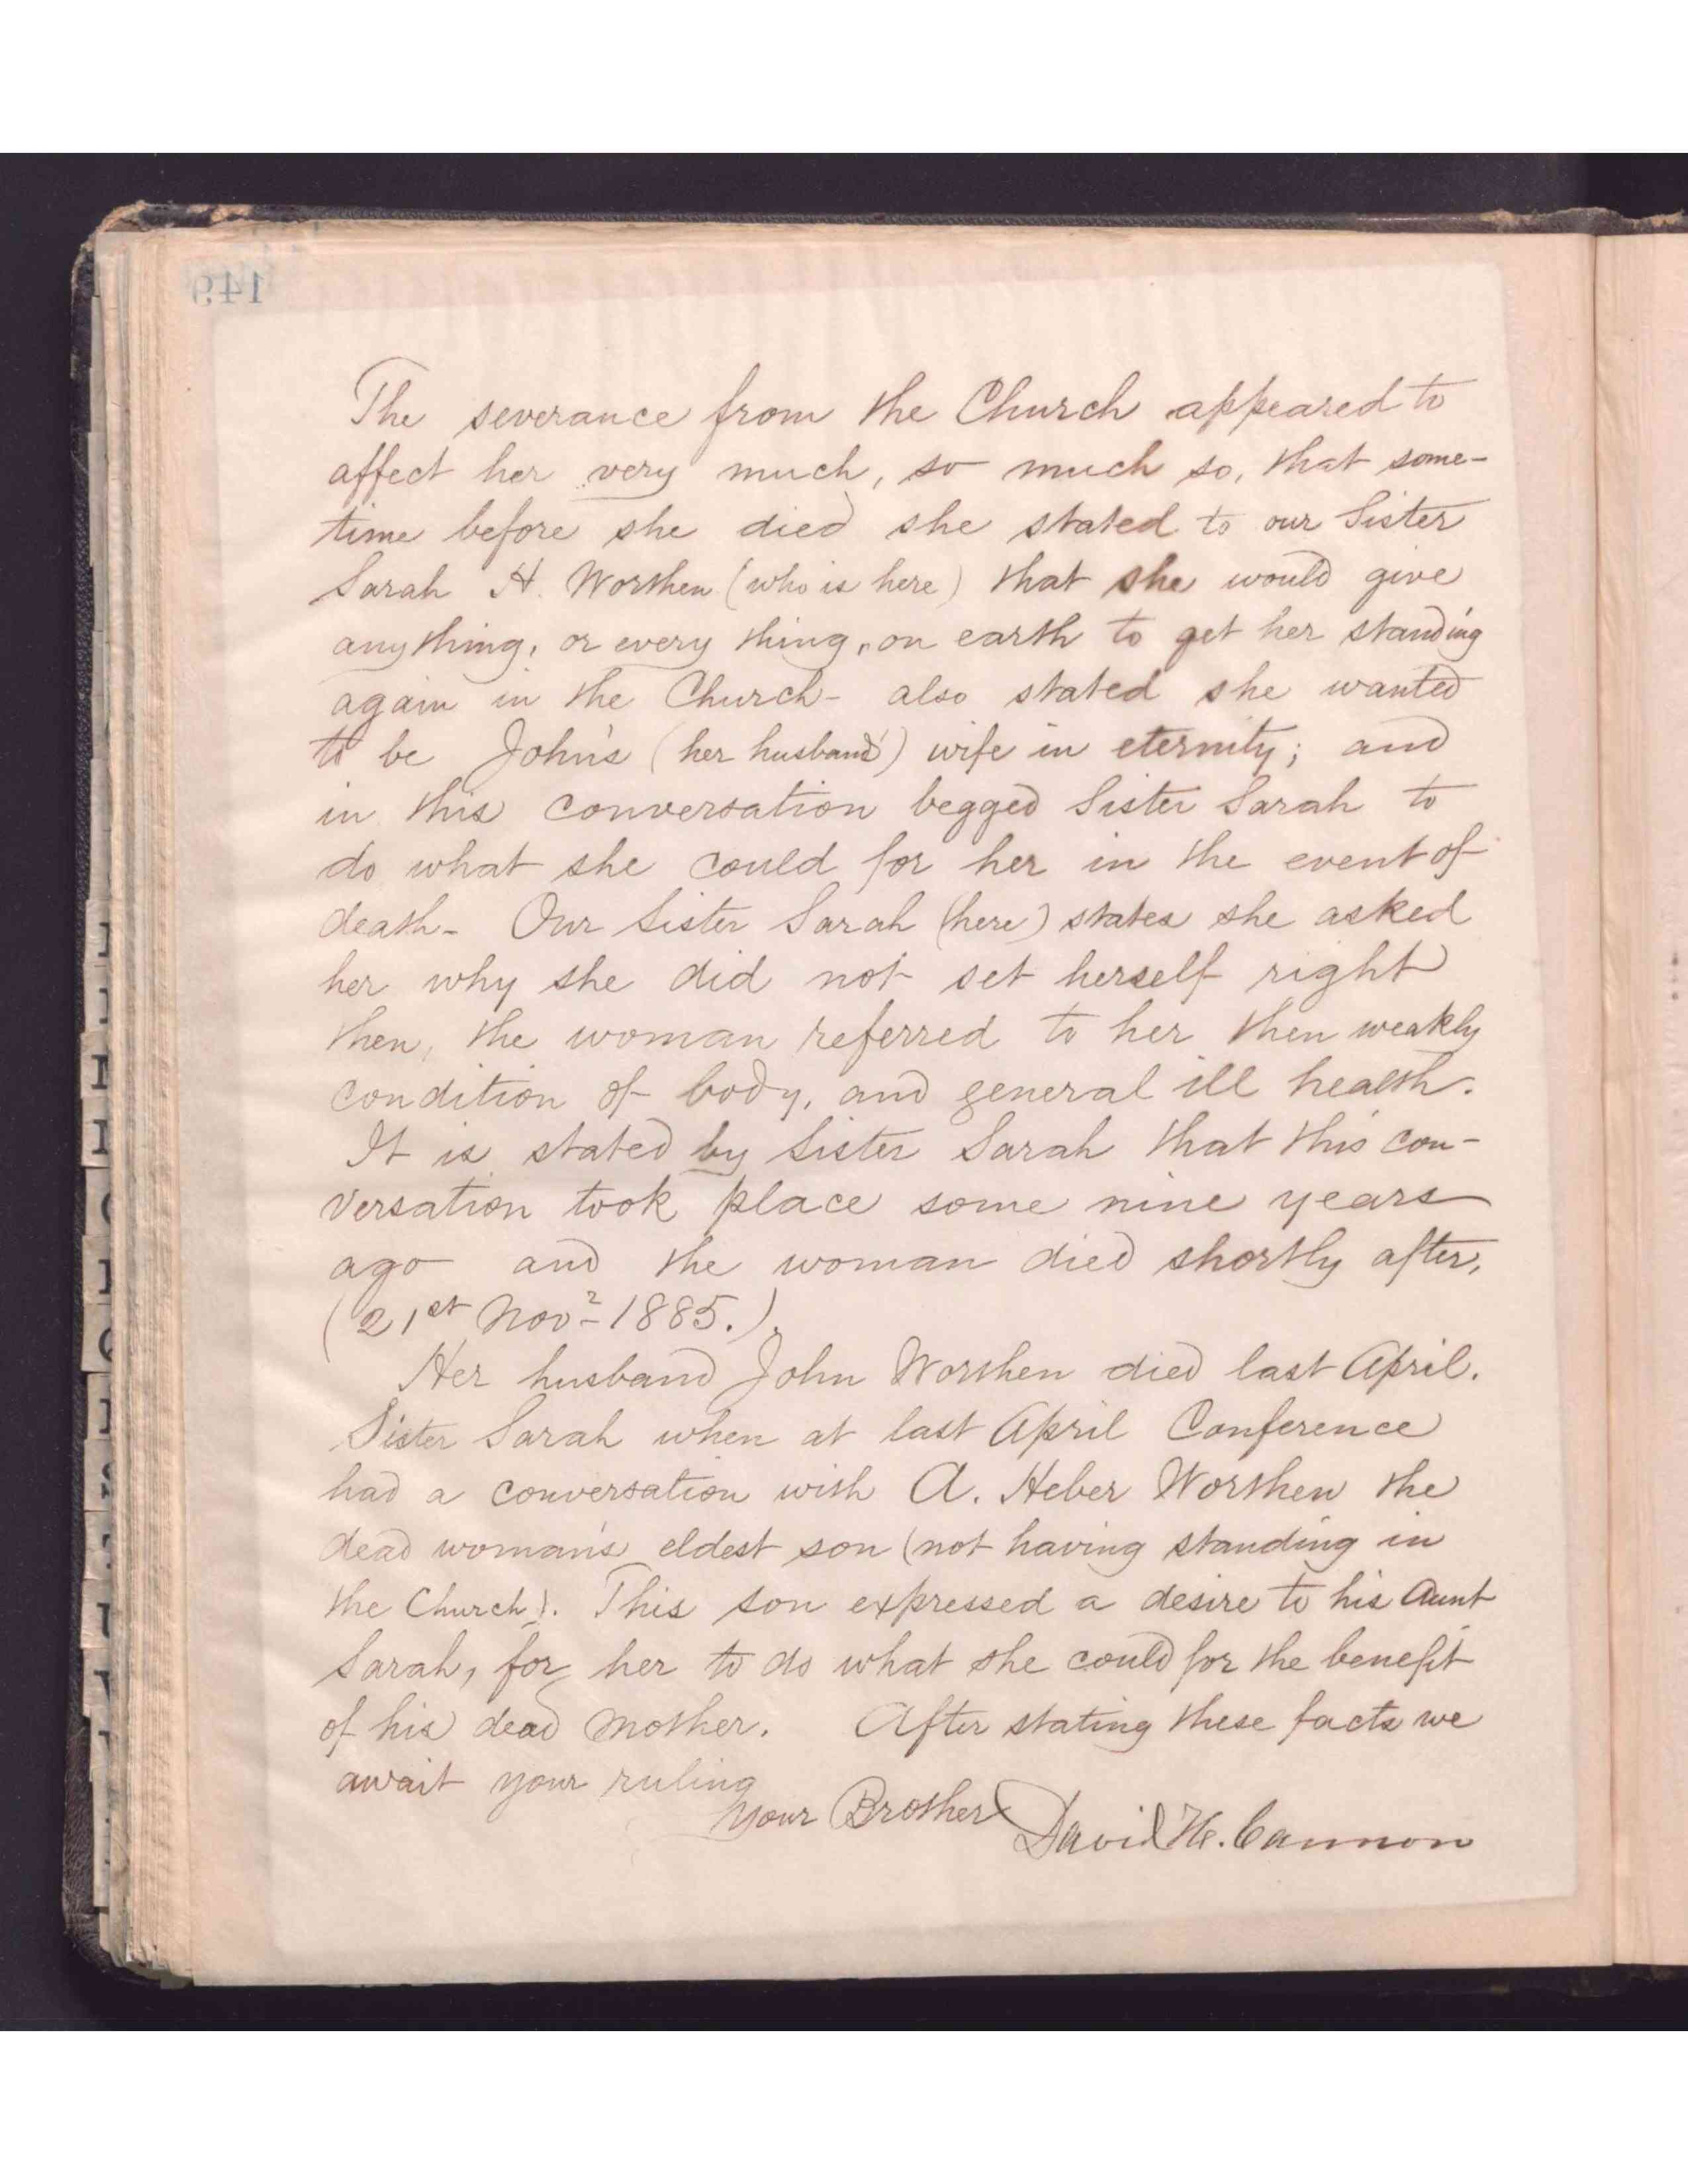 149
The severance from the Church appeared to
affect her very much, so much so, that some-
time before she died she stated to our Sister
Sarah H. Worthen (who is here) that she would give
anything, or every thing, on earth to get her standing
again in the Church - also stated she wanted
to be John's (her husband's) wife in eternity; and
in this conversation begged Sister Sarah to
do what she could for her in the event of
death - Our Sister Sarah (here) states she asked
her why she did not set herself right
then, the woman referred to her then weakly
condition of body, and general ill health.
It is stated by Sister Sarah that this con-
versation took place some nine years
ago and the woman died shortly after,
(21st Nov 1885.).
Her husband John Worthen died last April.
Sister Sarah when at last April Conference
had a conversation with A. Heber Worthen the
dead woman's eldest son (not having standing in
the Church). This son expressed a desire to his Aunt
Sarah, for her to do what she could for the benefit
of his dead mother. After stating these facts we
await your ruling
Your Brother David H. Cannon